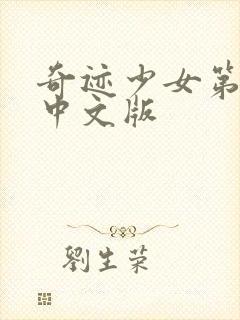 奇迹少女第
中文版
劉生荣